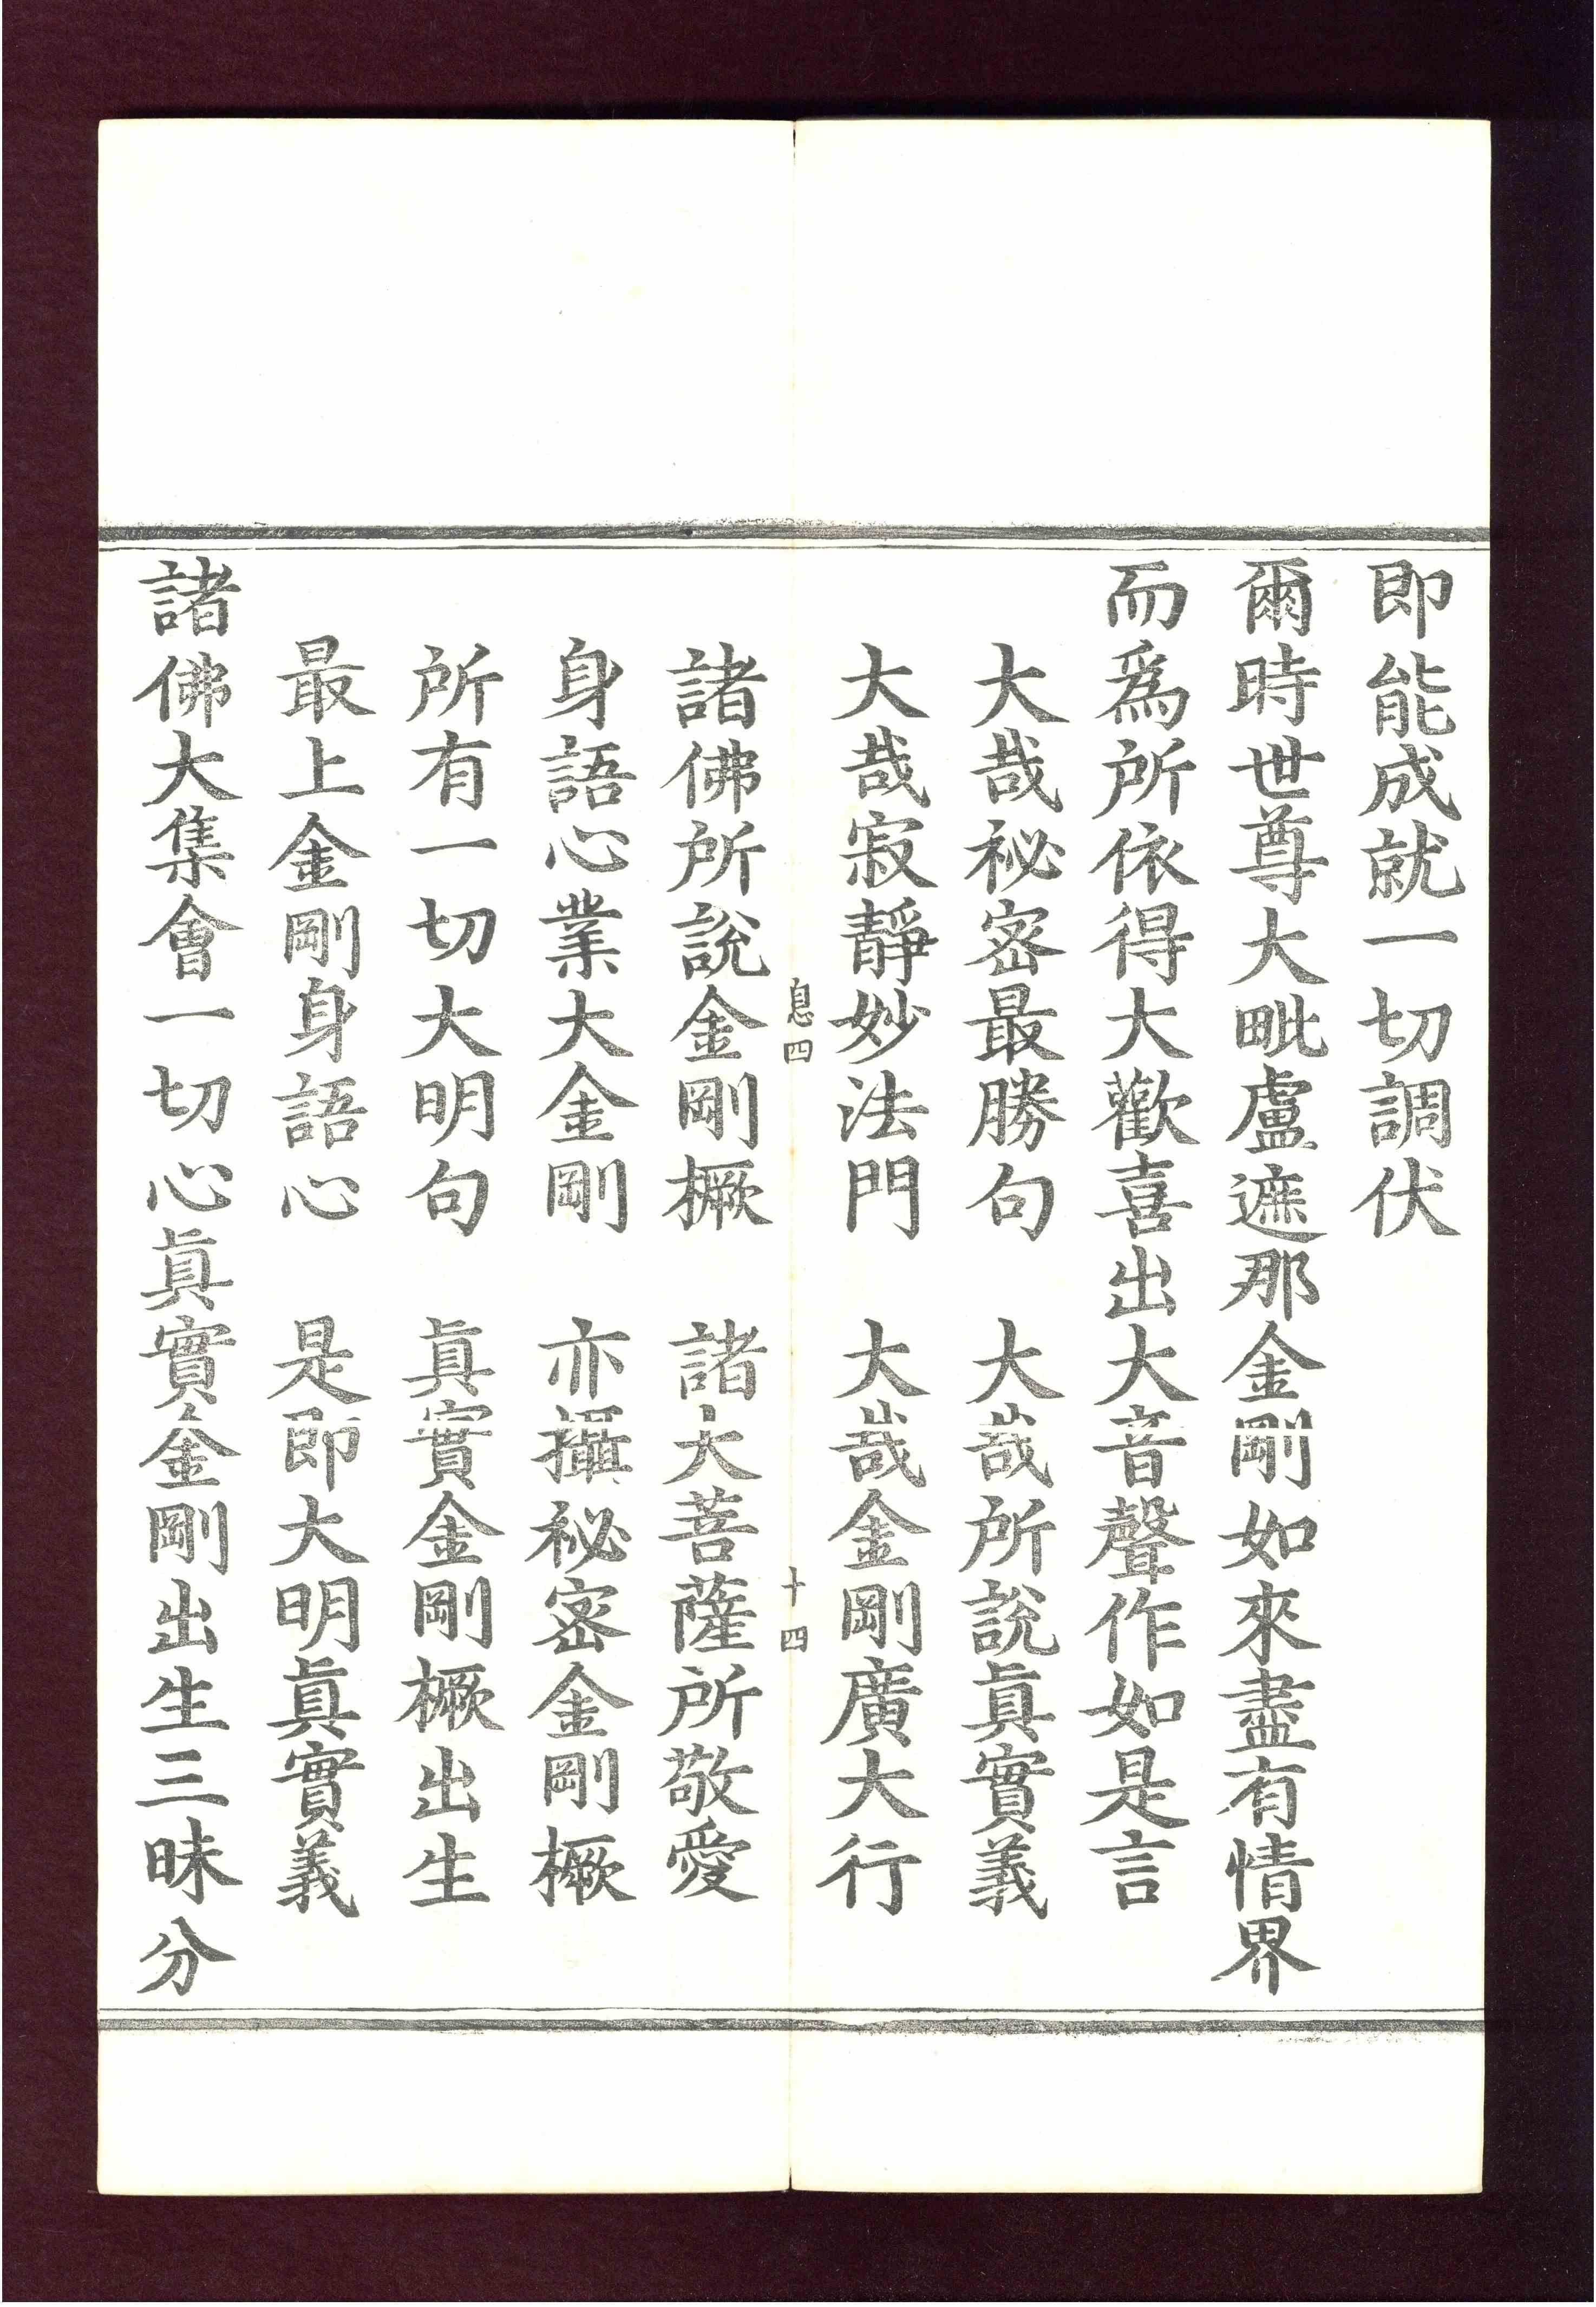 即能成就一切調伏
爾時世尊大毗盧遮那金剛如來盡有情界
而爲所依得大歡喜出大音聲作如是言
大哉秘密最勝句　大哉所說眞實義
大哉寂靜妙法門　大哉金剛廣大行
息四　十四
諸佛所說金剛橛　諸大菩薩所敬愛
身語心業大金剛　亦攝秘密金剛橛
所有一切大明句　眞實金剛橛出生
最上金剛身語心　是即大明眞實義
諸佛大集會一切心眞實金剛出生三昧分